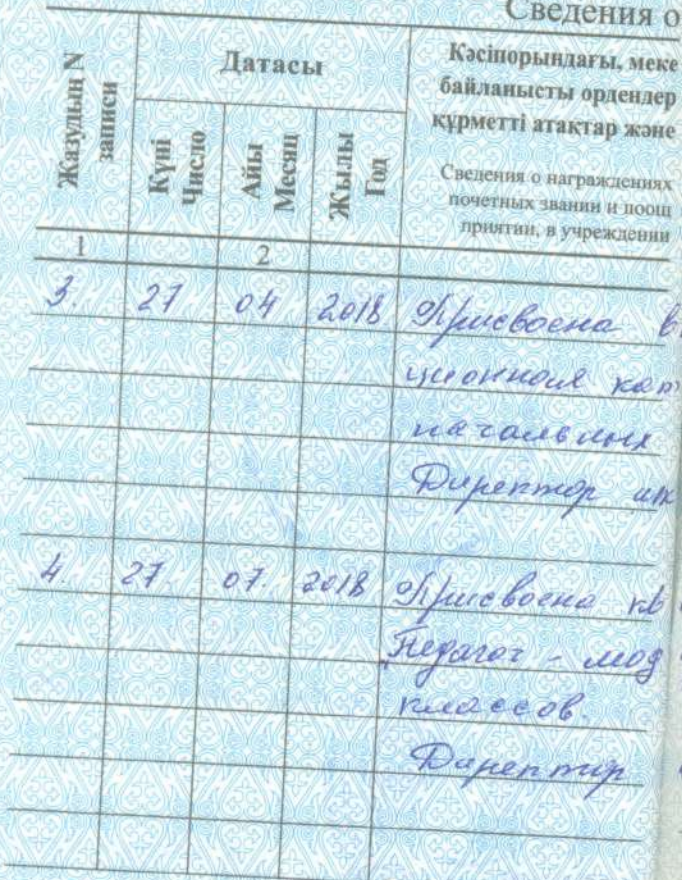 Сведения о
Жазудың N
записи
Датасы
Күні
Число
Айы
Месяц
Жылы
Год
Кәсіпорындағы, меке
байланысты ордендер
құрметті атақтар және
Сведения о награждениях
почетных звании и поощ
приятии, в учреждении
1 2
3. 27 04 2018 Присвоена в
ционная кат
начальных
Директор шк
4. 27. 07. 2018 Присвоена кв
"Педагог - мод
классов.
Директор